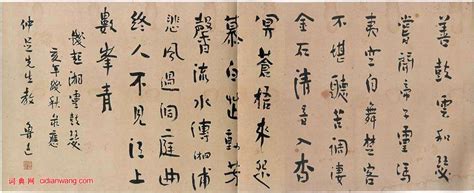 善鼓雲和瑟
嘗聞帝子靈馮
夷空自舞楚客
不堪聽苦調淒
金石清音入杳
冥蒼梧來怨
慕白芷動芳
馨流水傳湘浦
悲風過洞庭曲
終人不見江上
數峯青
錢起湘靈鼓瑟
亥年殘秋錄應
仲足先生教 魯迅
词典网 cidianwang.com